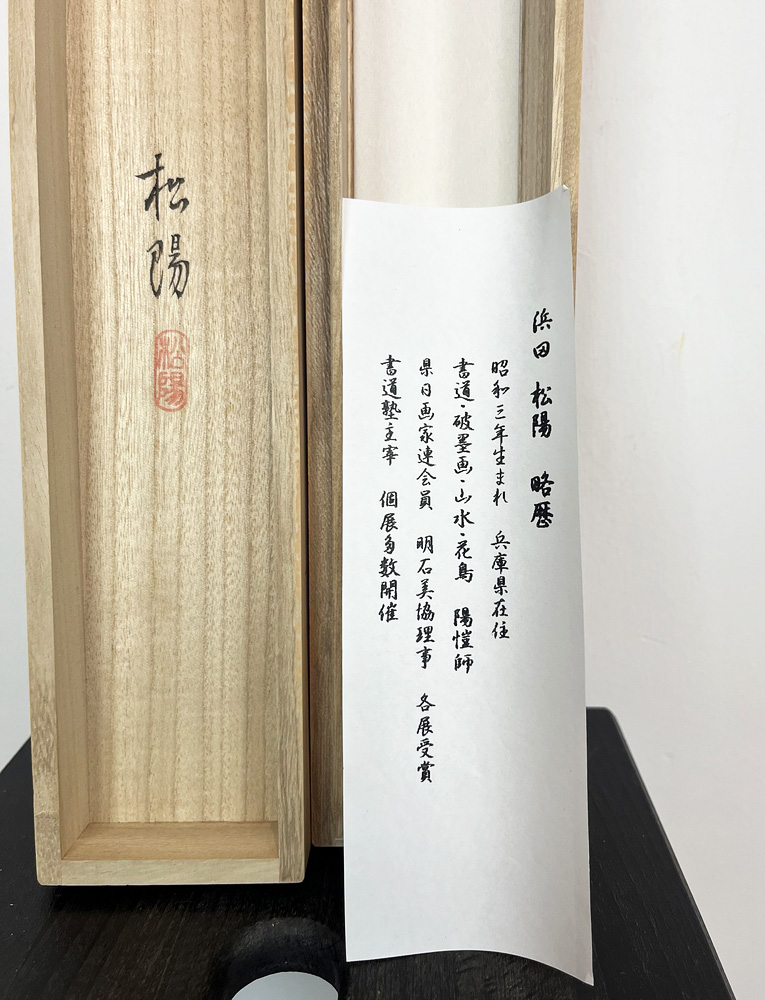 浜田 松陽 略歴
昭和三年生まれ 兵庫県在住
書道・破墨画・山水・花鳥 陽愷師
県日画家連会員 明石美協理事 各展受賞
書道塾主宰 個展多数開催
松陽
松陽